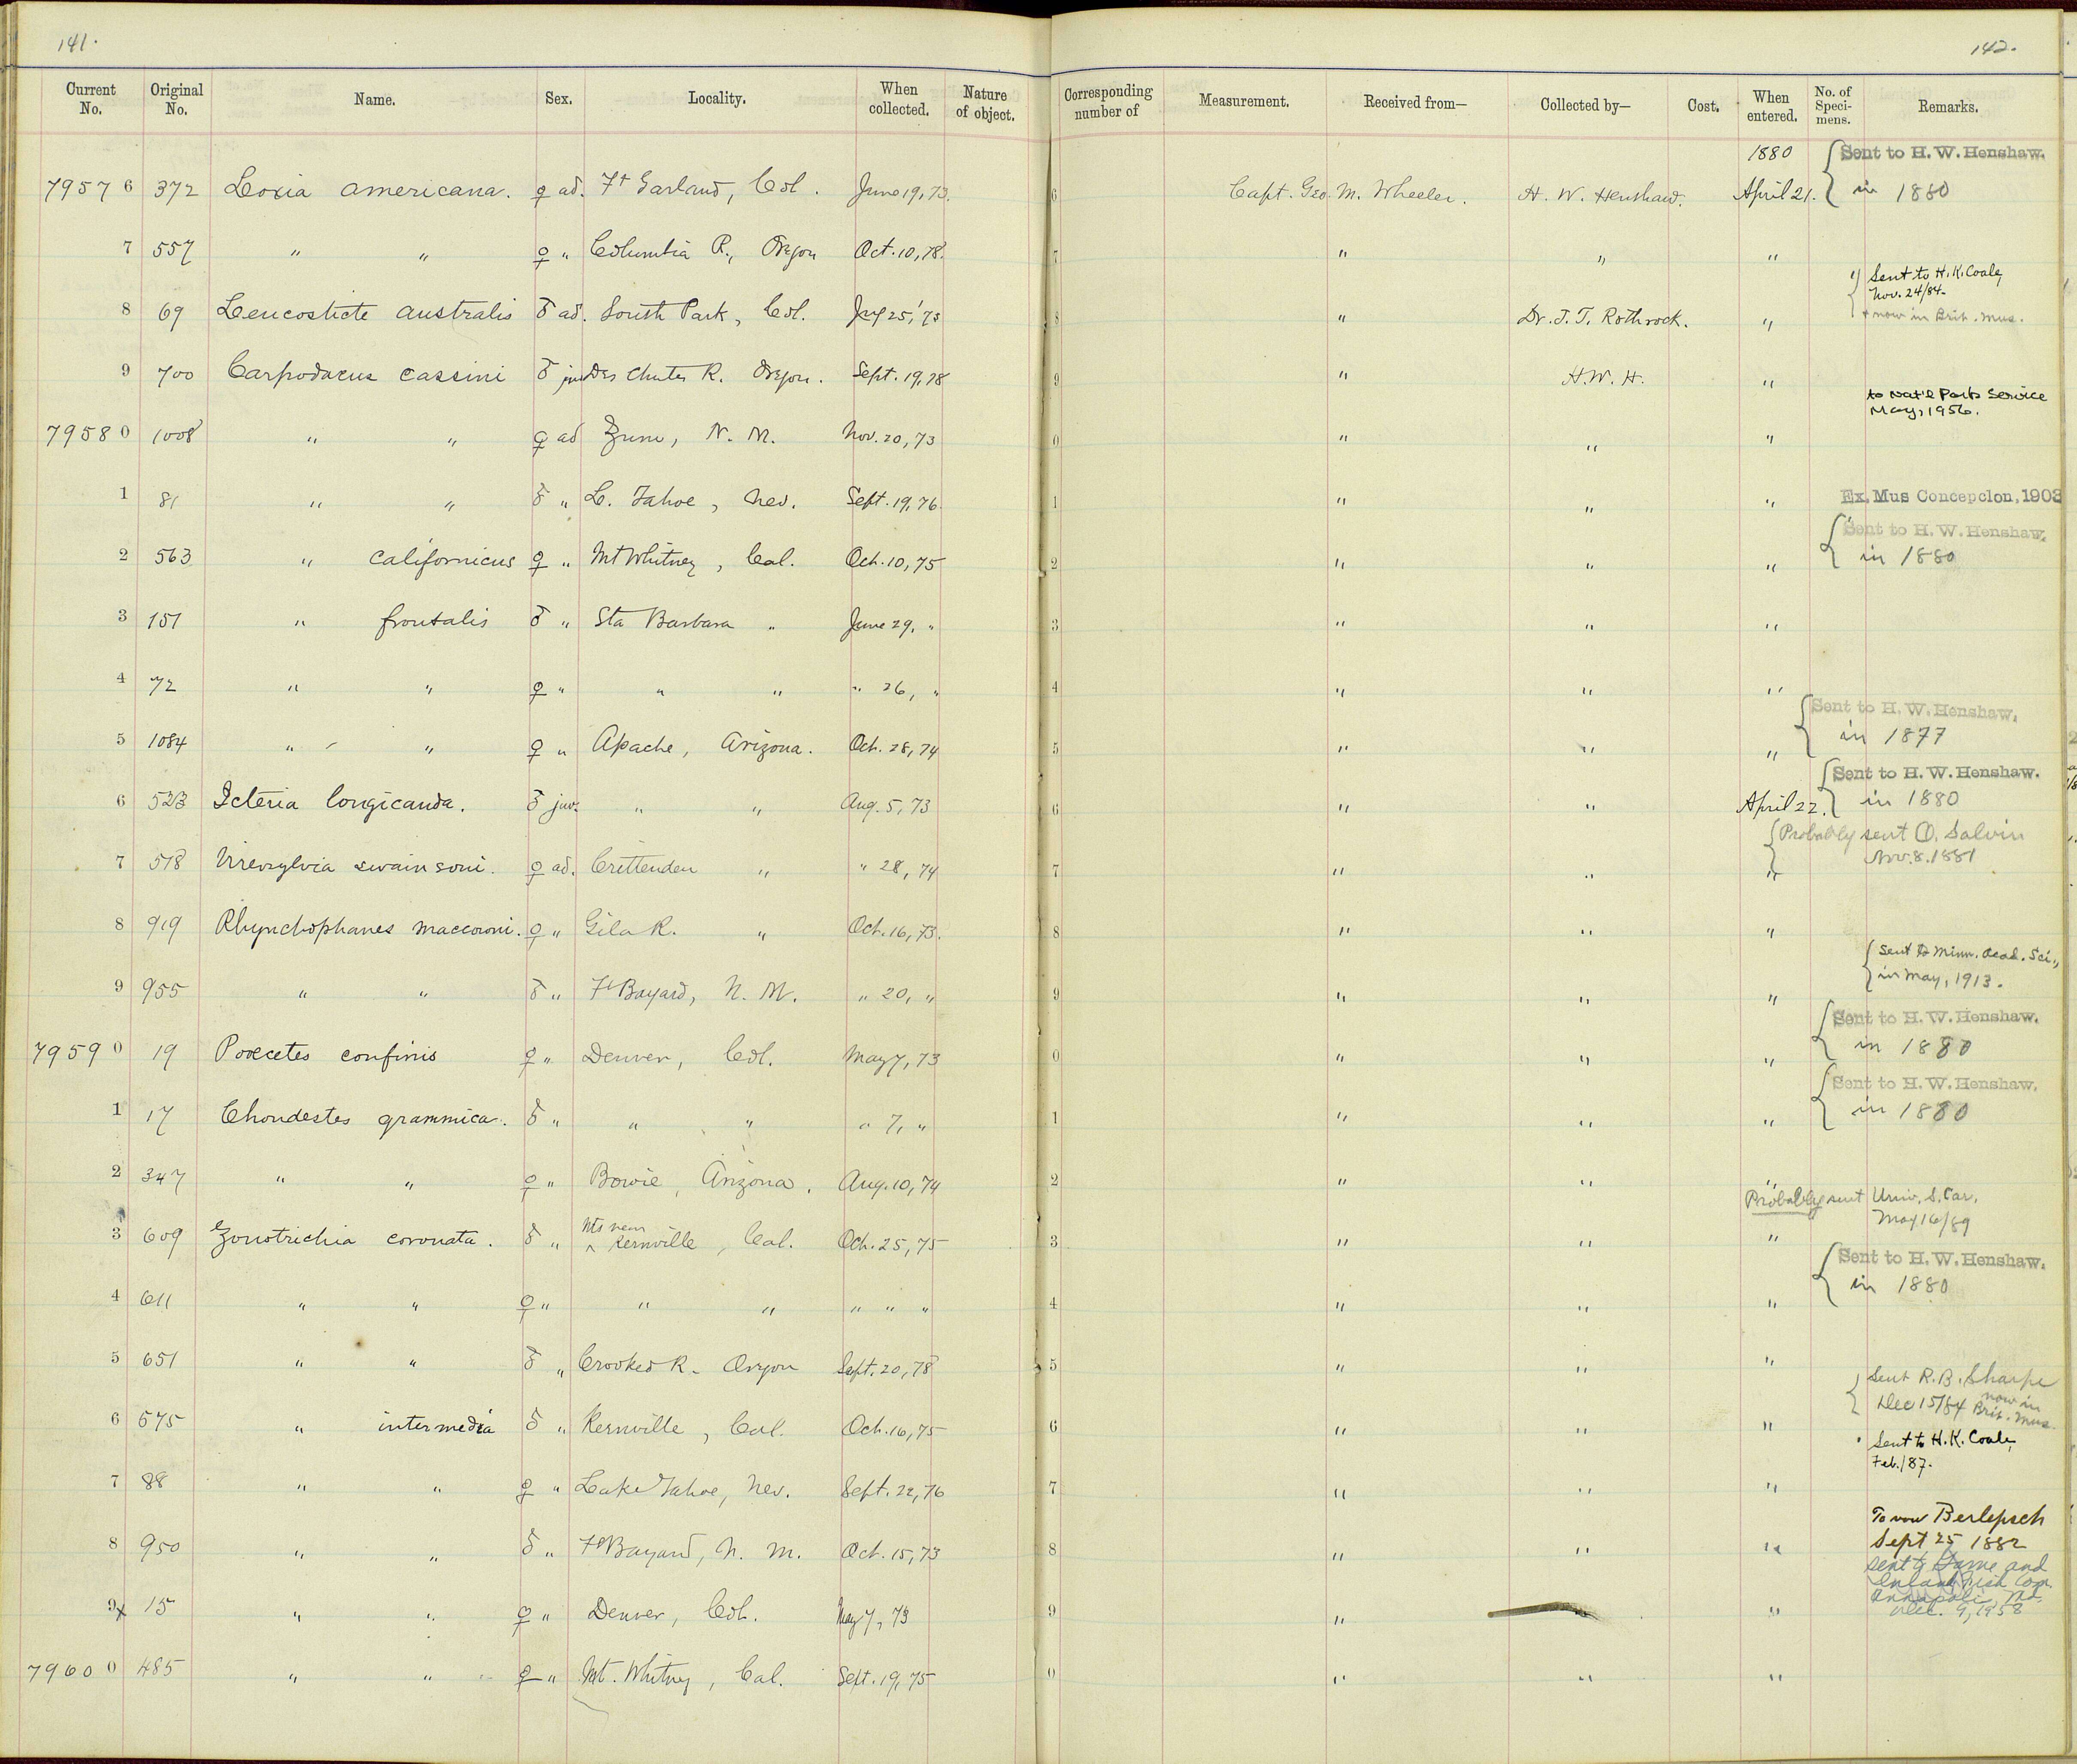 141.
142.
Current No. Original No. Name. Sex. Locality. When collected. Nature of object. Corresponding number of Measurement. Received from— Collected by— Cost. When entered. No. of Specimens. Remarks.
1880 Sent to H. W. Henshaw.
7957 6 372 Loxia americana. ♀ ad. Ft Garland, Col. June 19, 73. 6 Capt. Geo. M. Wheeler. H. W. Henshaw. April 21. in 1880
7 557 " " ♀ " Columbia R., Oregon Oct. 10, 78. 7 " " "
Sent to H. K. Coale,
Nov. 24/84.
8 69 Leucosticte australis ♂ ad. South Park, Col. 8 " Dr. J. T. Rothrock. " + now in Brit. Mus.
9 700 Carpodacus cassini ♂ juv Des Chutes R. Oregon. Sept. 19, 78 9 " H. W. H. "
to Nat'l Park Service
May, 1956.
7958 0 1008 " " ♀ ad Zuni, N. M. Nov. 20, 73 0 " " "
1 81 " " ♂ " L. Tahoe, Nev. Sept. 19, 76. 1 " " " Ex. Mus Concepcion, 1903
Sent to H. W. Henshaw.
2 563 " californicus ♀ " Mt Whitney, Cal. Oct. 10, 75 2 " " " in 1880
3 151 " frontalis ♂ " Sta Barbara " June 29, " 3 " " "
4 72 " " ♀ " " " " 26, " 4 " " "
Sent to H. W. Henshaw.
5 1084 " " ♀ " Apache, Arizona. Oct. 28, 74 5 " " " in 1877
Sent to H. W. Henshaw.
6 523 Icteria longicauda. ♂ juv. " " Aug. 5, 73 6 " " April 22. in 1880
Probably sent O. Salvin
Nov. 8. 1881
7 518 Vireosylvia swainsoni. ♀ ad. Crittenden " " 28, 74 7 " " "
8 919 Rhynchophanes maccowni. ♀ " Gila R. " Oct. 16, 73. 8 " " "
Sent to Minn. Acad. Sci.,
in May, 1913.
9 955 " " ♂ " Ft Bayard, N. M. " 20, " 9 " " "
Sent to H. W. Henshaw.
7959 0 19 Poœcetes confinis ♀ " Denver, Col. May 7, 73 0 " " " in 1880
Sent to H. W. Henshaw.
1 17 Chondestes grammica. ♂ " " " " 7, " 1 " " " in 1880
2 347 " " ♀ " Bowie, Arizona. Aug. 10, 74 2 " " "
Probably sent Univ. S. Car.
May 16/89
3 609 Zonotrichia coronata. ♂ " Mts near Kernville, Cal. Oct. 25, 75 3 " " "
Sent to H. W. Henshaw.
in 1880
4 611 " " ♀ " " " " " " 4 " " "
5 651 " " ♂ " Crooked R. Oregon Sept. 20, 78 5 " " "
Sent R. B. Sharpe
Dec 15/84 now in Brit. Mus.
6 575 " intermedia ♂ " Kernville, Cal. Oct. 16, 75 6 " " "
Sent to H. K. Coale,
Feb./87.
7 88 " " ♀ " Lake Tahoe, Nev. Sept. 22, 76 7 " " "
To von Berlepsch
Sept 25 1882
8 950 " " ♂ " Ft Bayard, N. M. Oct. 15, 73 8 " " "
Sent to Game and
Inland Fish Com.
Annapolis, Md.
Dec. 9, 1958
9x 15 " " ♀ " Denver, Col. May 7, 73 9 " "
7960 0 485 " " ♀ " Mt. Whitney, Cal. Sept. 19, 75 0 " " "